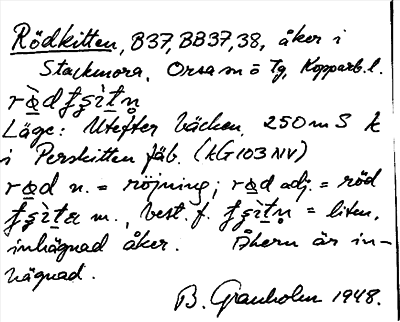 Rödkitten, B37, BB37,38, åker i
Stackmora, Orsa m ö Tg, Kopparb. l.
Läge: Utefter bäcken, 250 m S k
i Perskitten fäb. (kG103NV)
n. = röjning; adj. = röd
m., best. f. = liten,
inhägnad åker. Åkern är in-
hägnad.
B. Granholm 1948.